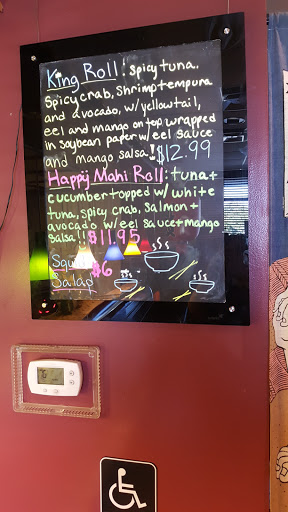 King Roll: Spicy tuna,
Spicy crab, Shrimp tempura
and avocado, w/yellowtail,
eel and mango on top wrapped
in Soybean paper w/ eel sauce
and mango salsa!! $12.99
Happy Mahi Roll: tuna +
cucumber topped w/ white
tuna, spicy crab, salmon +
avocado w/ eel sauce + mango
salsa!! $11.95
$6
Salad